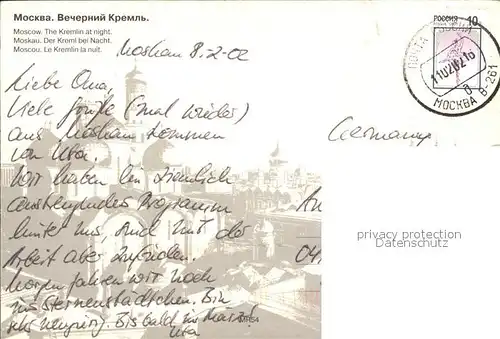 Москва. Вечерний Кремль.
Moscow. The Kremlin at night.
Moskau. Der Kreml bei Nacht.
Moscou. Le Kremlin la nuit.
РОССИЯ 10
ПОЧТА РОССИИ
МОСКВА В-261
Moskau 8.2.02
Liebe Oma,
viele Grüße (mal wieder)
aus Moskau kommen
von Uta.
Wir haben ein ziemlich
anstrengendes Programm
hinter uns, sind mit der
Arbeit aber zufrieden.
Morgen fahren wir noch
ins Sternenstädtchen. Bin
sehr neugierig. Bis bald im März!
Uta
Germany
An
04
privacy protection
Datenschutz